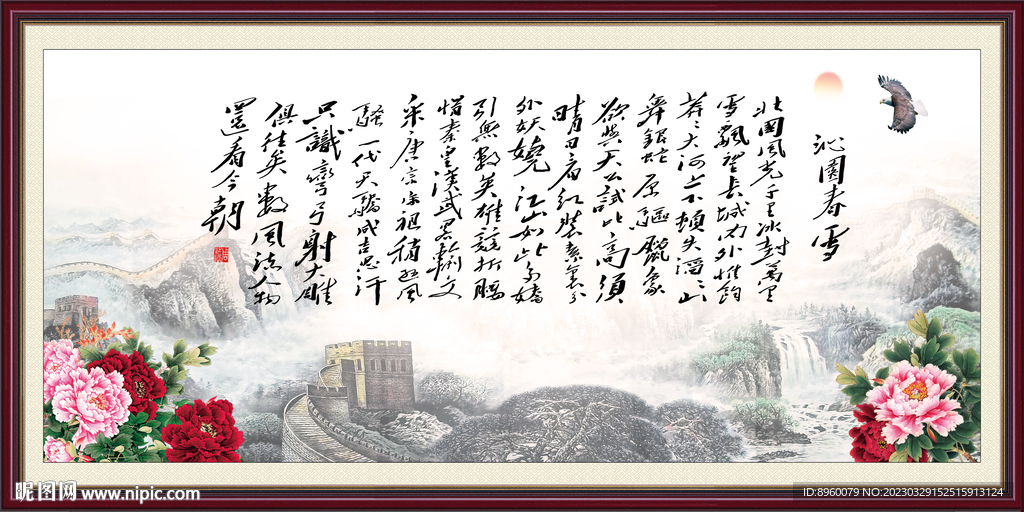 沁園春雪
北國風光千里冰封萬里
雪飄望長城内外惟餘
莽〻大河上下頓失滔〻山
舞銀蛇原驅臘象
欲與天公試比高須
晴日看紅裝素裹分
外妖嬈江山如此多嬌
引無數英雄競折腰
惜秦皇漢武略輸文
采唐宗宋祖稍遜風
騷一代天驕成吉思汗
只識彎弓射大雕
俱往矣數風流人物
還看今朝
昵图网 www.nipic.com
ID:8960079 NO:20230329152515913124